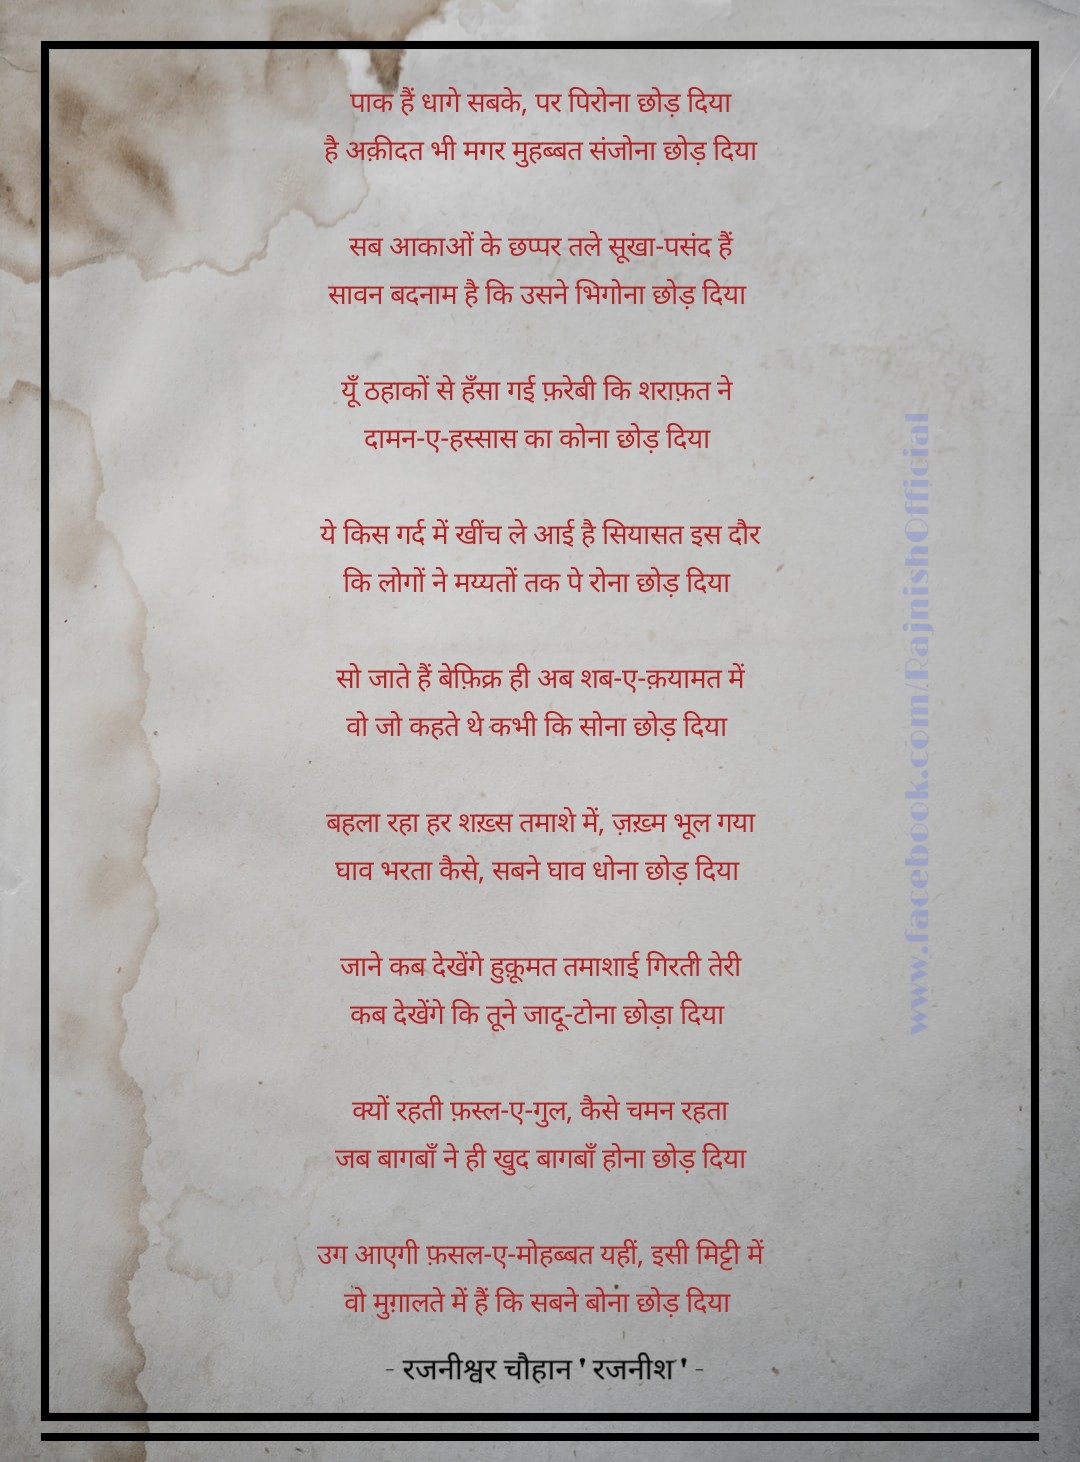 पाक हैं धागे सबके, पर पिरोना छोड़ दिया
है अक़ीदत भी मगर मुहब्बत संजोना छोड़ दिया
सब आकाओं के छप्पर तले सूखा-पसंद हैं
सावन बदनाम है कि उसने भिगोना छोड़ दिया
यूँ ठहाकों से हँसा गई फ़रेबी कि शराफ़त ने
दामन-ए-हस्सास का कोना छोड़ दिया
ये किस गर्द में खींच ले आई है सियासत इस दौर
कि लोगों ने मय्यतों तक पे रोना छोड़ दिया
सो जाते हैं बेफ़िक्र ही अब शब-ए-क़यामत में
वो जो कहते थे कभी कि सोना छोड़ दिया
बहला रहा हर शख़्स तमाशे में, ज़ख़्म भूल गया
घाव भरता कैसे, सबने घाव धोना छोड़ दिया
जाने कब देखेंगे हुक़ूमत तमाशाई गिरती तेरी
कब देखेंगे कि तूने जादू-टोना छोड़ा दिया
क्यों रहती फ़स्ल-ए-गुल, कैसे चमन रहता
जब बागबाँ ने ही खुद बागबाँ होना छोड़ दिया
उग आएगी फ़सल-ए-मोहब्बत यहीं, इसी मिट्टी में
वो मुग़ालते में हैं कि सबने बोना छोड़ दिया
- रजनीश्वर चौहान ' रजनीश ' -
www.facebook.com/RajnishOfficial